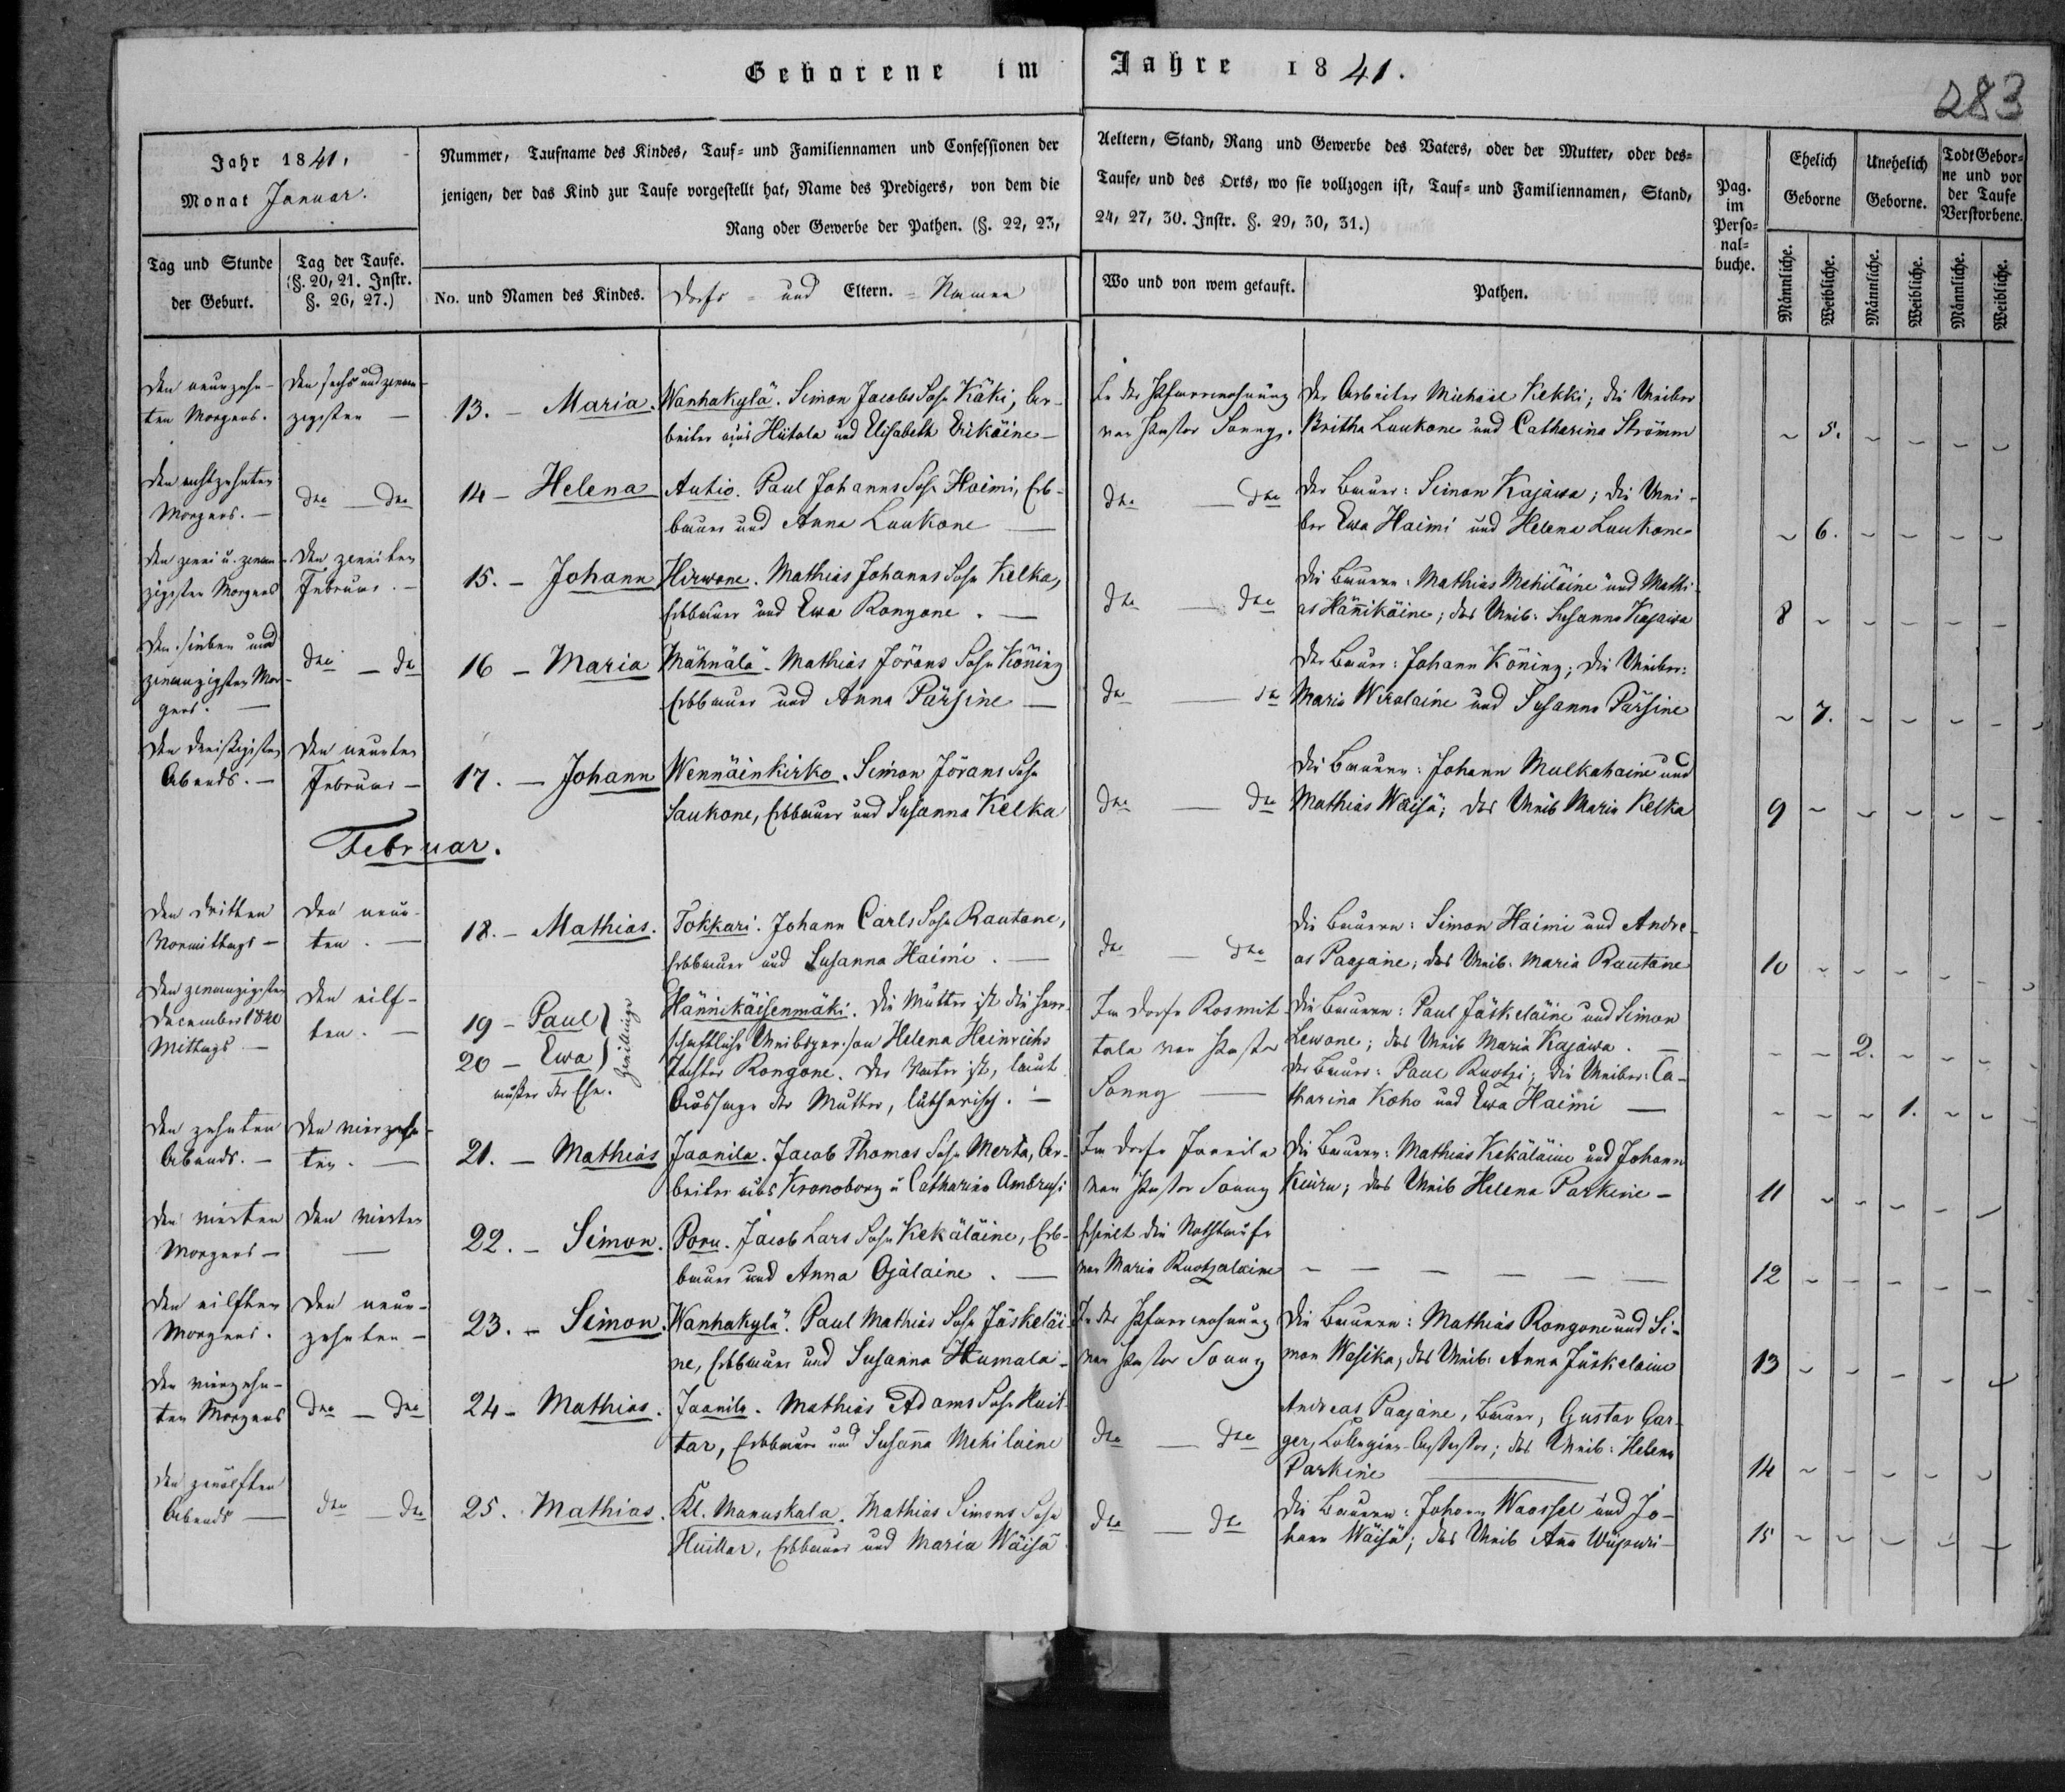 Geborene im Jahre 1841.
283
Jahr 1841,
Monat Januar.
Tag und Stunde der Geburt.
Tag der Taufe. (§. 20, 21. Instr. §. 26, 27.)
Nummer, Taufname des Kindes, Tauf- und Familiennamen und Confessionen der
jenigen, der das Kind zur Taufe vorgestellt hat, Name des Predigers, von dem die
Rang oder Gewerbe der Pathen. (§. 22, 23,
No. und Namen des Kindes.
Dorfs- und Eltern-Namen
Aeltern, Stand, Rang und Gewerbe des Vaters, oder der Mutter, oder des-
Taufe, und des Orts, wo sie vollzogen ist, Tauf- und Familiennamen, Stand,
24, 27, 30. Instr. §. 29, 30, 31.)
Wo und von wem getauft.
Pathen.
Pag. im Perso-nal-buche.
Ehelich Geborne
Unehelich Geborne.
Todt Gebor-ne und vor der Taufe Verstorbene.
Männliche. Weibliche. Männliche. Weibliche. Männliche. Weibliche.
Den neunzehn-
ten Morgens.
Den sechs und zwan-
zigsten —
13. — Maria.
Wanhakylä. Simon Jacobs Sohn Käki, Ar-
beiter aus Hiitola und Elisabeth Erikäine —
In der Pfarrwohnung
von Pastor Sonny.
Der Arbeiter Michael Kekki; die Weiber
Britha Laukone und Catharina Strömm
5.
Den achtzehnten
Morgens. —
dto — dto
14 — Helena
Autio. Paul Johanns Sohn Haimi, Erb-
bauer und Anna Laukone —
dto — dto
Der Bauer: Simon Kajawa; die Wei-
ber Ewa Haimi und Helena Laukone
6.
Den zwei u. zwan-
zigsten Morgens
Den zweiten
Februar. —
15. — Johann
Hirwone. Mathias Johanns Sohn Kelka,
Erbbauer und Ewa Rongone. —
dto — dto
Die Bauern: Mathias Mehiläine und Mathi-
as Hänikäine; das Weib: Susanna Kajawa
8
Den sieben und
zwanzigsten Mor-
gens. —
dto — dto
16 — Maria
Mähnälä. Mathias Jörans Sohn Köning
Erbbauer und Anna Pärsine —
dto — dto
Der Bauer: Johann Köning; die Weiber:
Maria Wirolaine und Susanna Pärsine
7.
Den dreissigsten
Abends. —
Den neunten
Februar —
17. — Johann
Wennäinkirko. Simon Jörans Sohn
Laukone, Erbbauer und Susanna Kelka
dto — dto
Die Bauern: Johann Mulkahaine und
Mathias Wäisä; das Weib Maria Kelka
9
Februar.
Den dritten
Vormittags —
Den neun-
ten. —
18. — Mathias.
Tokkari. Johann Carls Sohn Rautane,
Erbbauer und Susanna Haimi. —
dto — dto
Die Bauern: Simon Haimi und Andre-
as Paajane; das Weib. Maria Rautane
10
Den zwanzigsten
December 1840
Mittags —
Den eilf-
ten. —
19 — Paul
20 — Ewa
Zwillinge
ausser der Ehe.
Hännikäisenmäki. Die Mutter ist die herr-
schaftliche Weibsperson Helena Heinrichs
Tochter Rongone. Der Vater ist, laut
Aussage der Mutter, lutherisch. —
Im Dorfe Rosmit-
tala von Pastor
Sonny —
Die Bauern: Paul Jäskeläine und Simon
Lewone; das Weib Maria Kajawa. —
Der Bauer: Paul Ruotzi; die Weiber: Ca-
tharina Koho und Ewa Haimi —
2.
1.
Den zehnten
Abends. —
Den vierzehn-
ten. —
21. — Mathias
Jaanila. Jacob Thomas Sohn Merta, Ar-
beiter aus Kronoborg u Catharina Ambrusi
Im Dorfe Jaanila
von Pastor Sonny
Die Bauern: Mathias Kekäläine und Johann
Keuru; das Weib Helena Parkine —
11
Den vierten
Morgens —
Den vierten
—
22. — Simon.
Poru. Jacob Lars Sohn Kekäläine, Erb-
bauer und Anna Ojalaine. —
Erhielt die Nothtaufe
von Maria Ruotzalaine
12
Den eilften
Morgens.
Den neun-
zehnten —
23. — Simon.
Wanhakylä. Paul Mathias Sohn Jäskeläi-
ne, Erbbauer und Susanna Humalai-
In der Pfarrwohnung
von Pastor Sonny
Die Bauern: Mathias Rongone und Si-
mon Wasika; das Weib: Anna Jäskelaine
13
Den vierzehn-
ten Morgens
dto — dto
24 — Mathias.
Jaanila. Mathias Adams Sohn Huit-
tar, Erbbauer und Susanna Mehilaine
dto — dto
Andreas Paajane, Bauer, Gustav Gar-
ger, Collegien-Assessor; das Weib: Helena
Parkine
14
Den zwölften
Abends —
dto — dto
25. Mathias.
Kl. Manuskala. Mathias Simons Sohn
Huittar, Erbbauer und Maria Wäisä
dto — dto
Die Bauern: Johann Waassel und Jo-
hann Wäisä; das Weib Anna
15